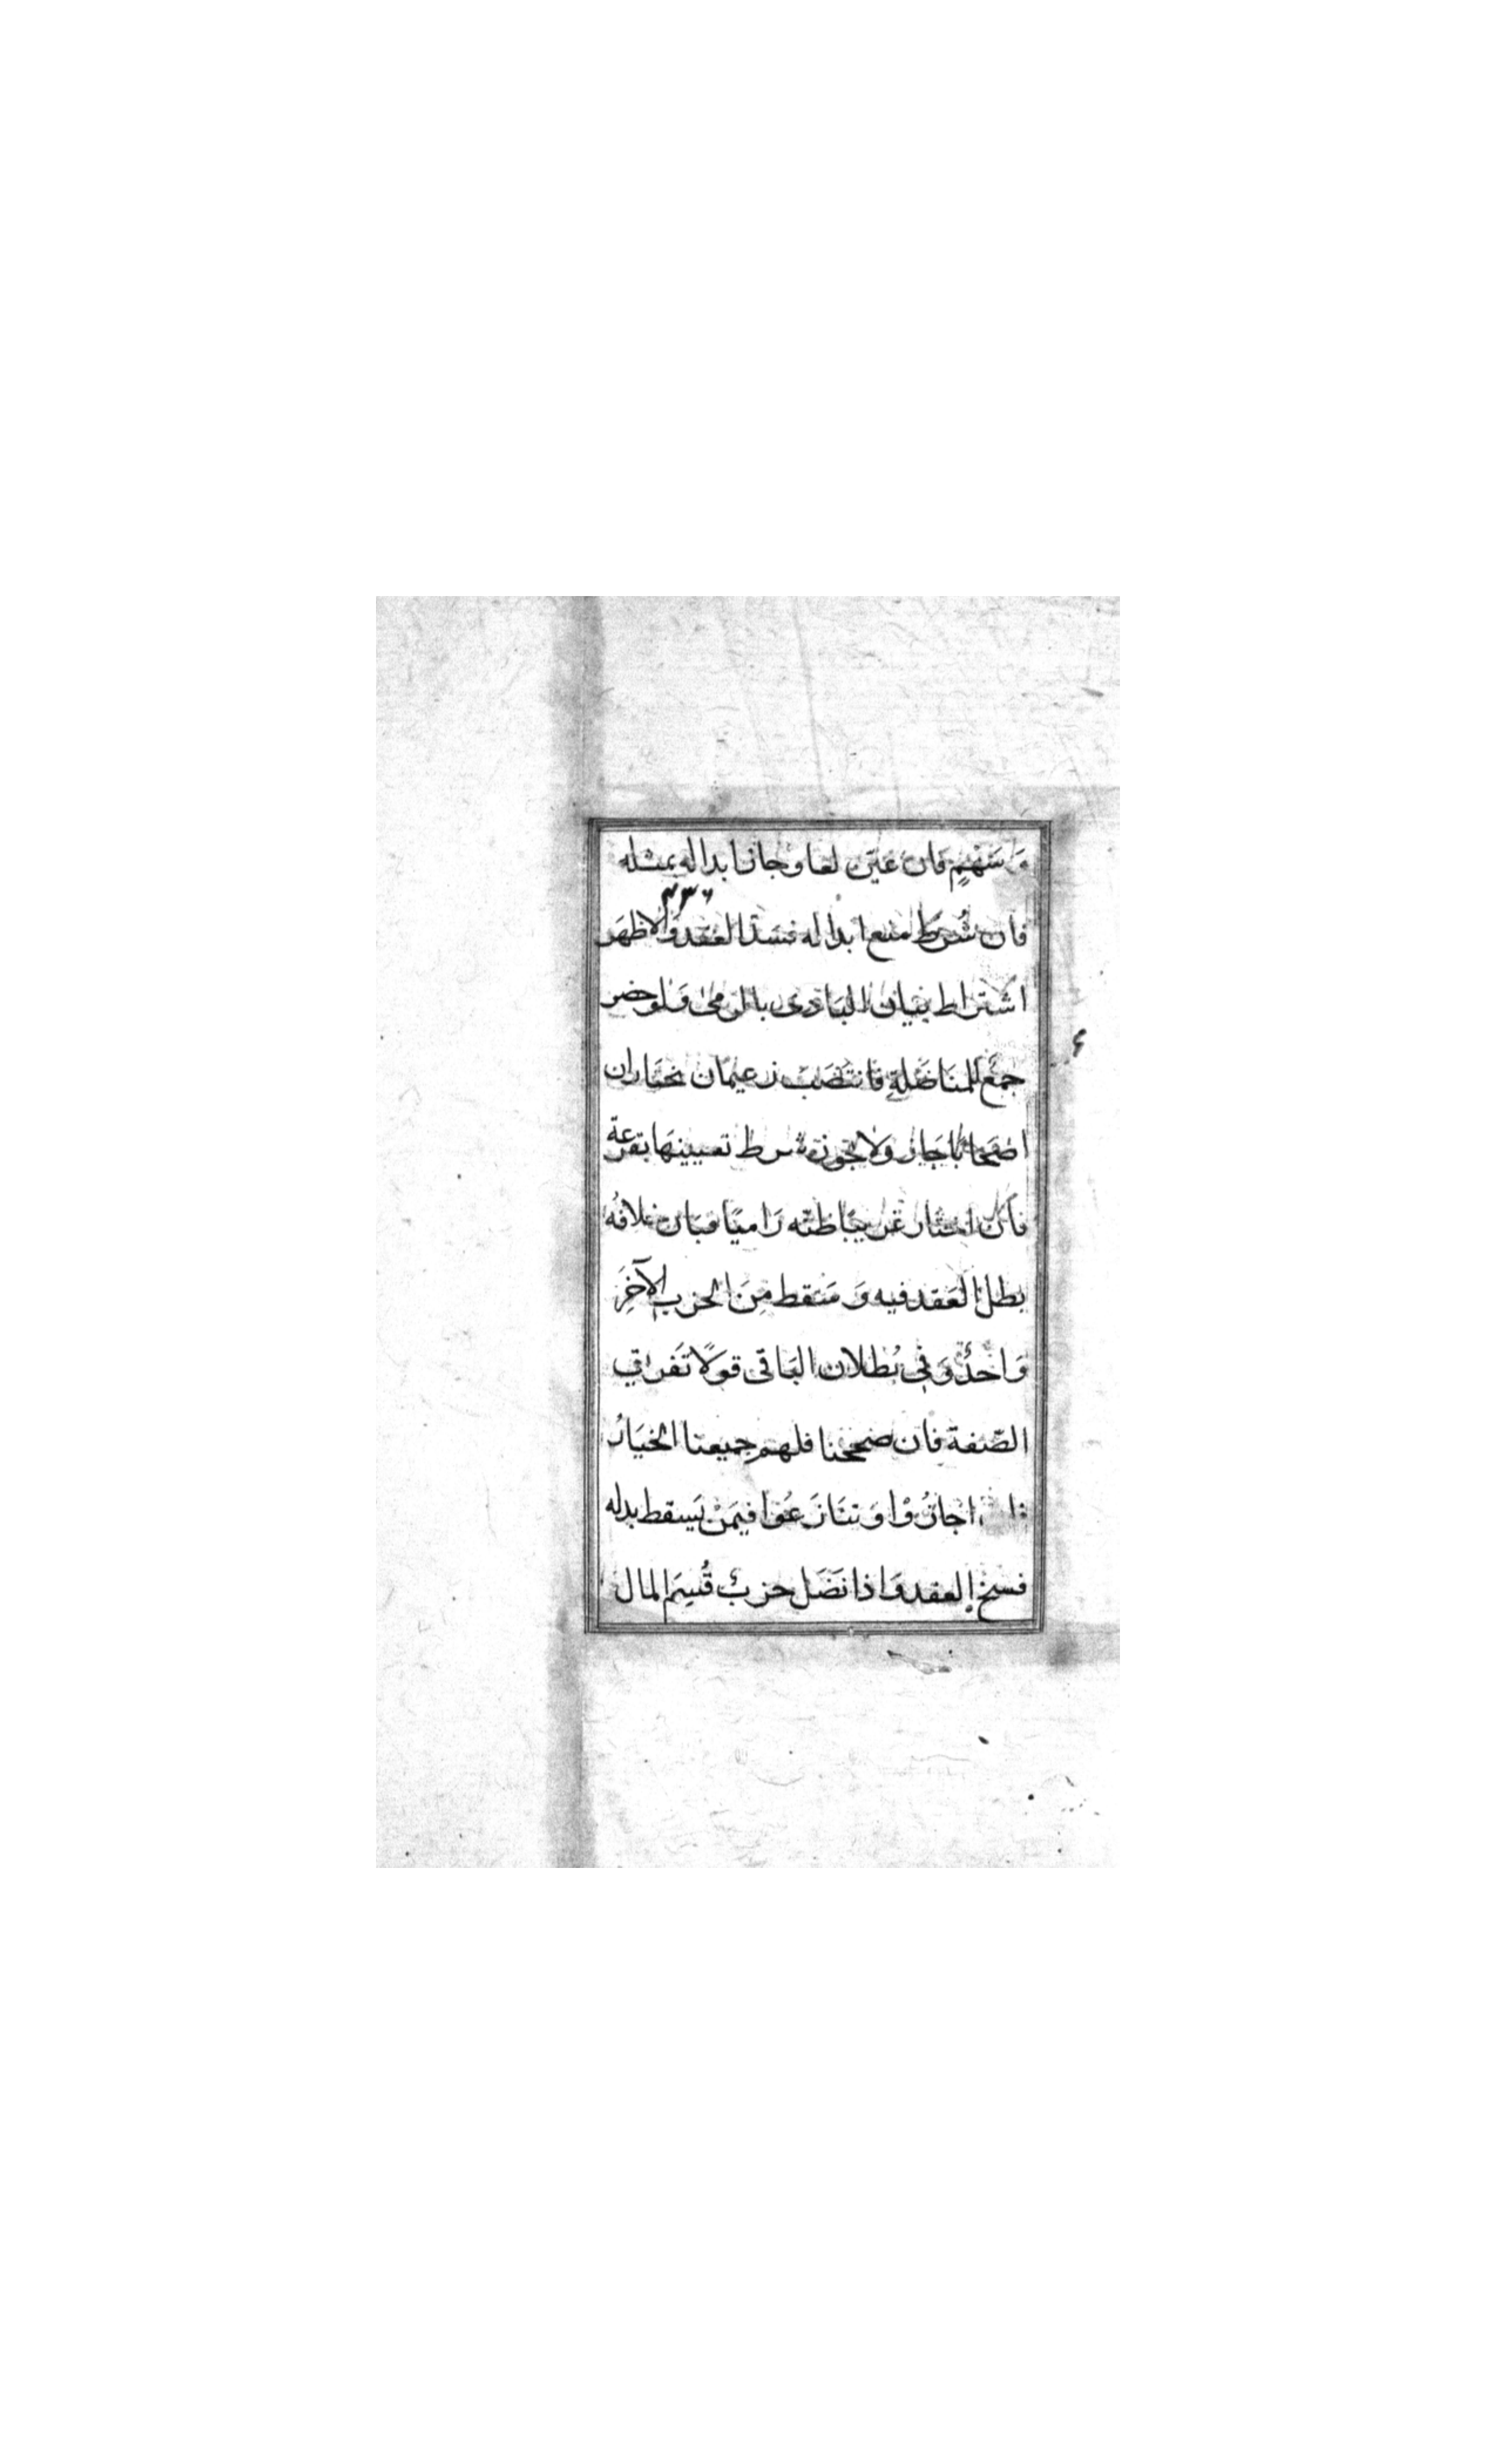 وَسَهْمٍ فان عَيّن لغا وجاز ابداله بمثله
۴۳۶
فان شُرِطَ منع ابداله فسَدَ العقد والاظهَر
اشتراط بَيان البَادى بالرمى وَلو حضر
جمْع للمنَاضَلة فانتصَب زعيمَان يختَاران
اصْحَابًا جَاز وَلا يجوز شرط تعيينهَا بقرعة
فان اختار غريبًا ظنّه رَاميًا فبَان خلافُه
بطل العَقد فيه وَسَقط مِنَ الحزب الآخَرِ
وَاحدٌ وَفي بُطلان البَاقى قولا تَفريق
الصّفقة فان صححنا فلهم جميعا الخيَارُ
اجازُوْا وَتنَازَعُوا فيمَنْ يَسقط بدله
فسخ العقد وَاذا نَضَل حزبٌ قُسِمَ المال